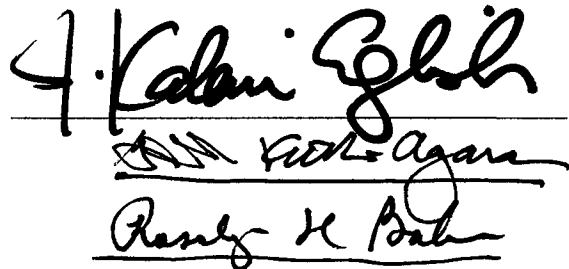 J. Kalani English
Gil Keith-Agaran
Rosalyn H Baker